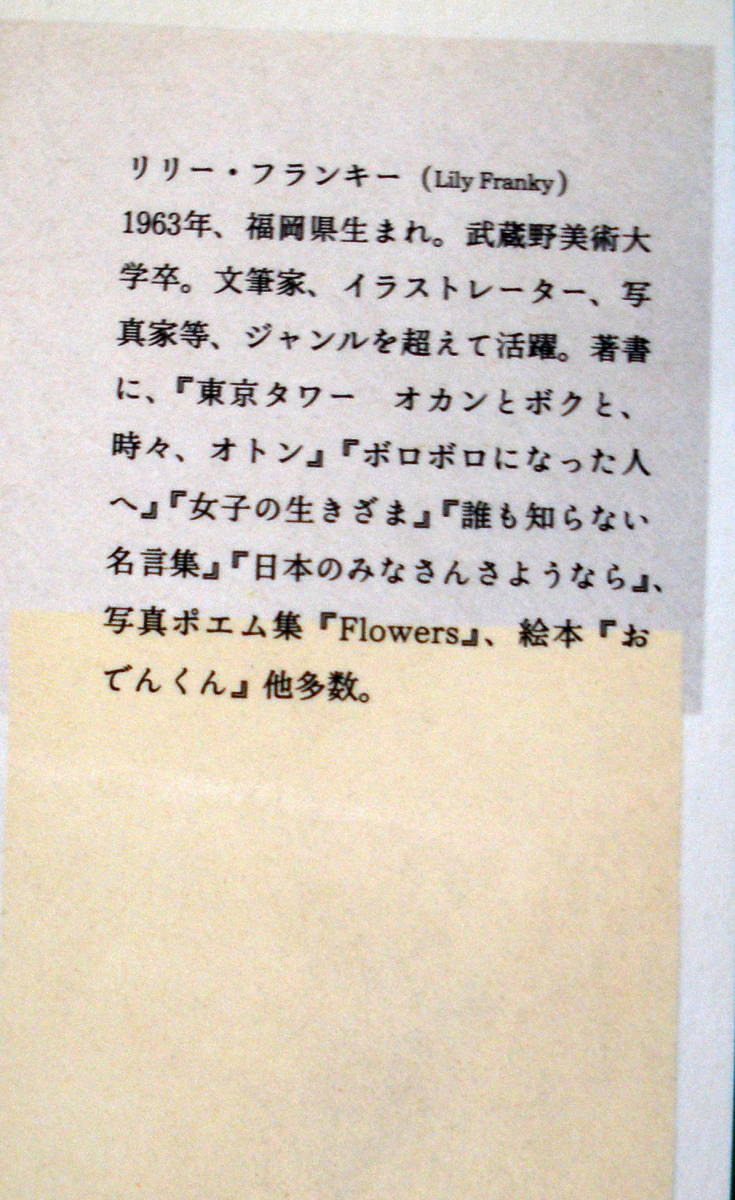 リリー・フランキー（Lily Franky）
1963年、福岡県生まれ。武蔵野美術大
学卒。文筆家、イラストレーター、写
真家等、ジャンルを超えて活躍。著書
に、『東京タワー　オカンとボクと、
時々、オトン』『ボロボロになった人
へ』『女子の生きざま』『誰も知らない
名言集』『日本のみなさんさようなら』、
写真ポエム集『Flowers』、絵本『お
でんくん』他多数。